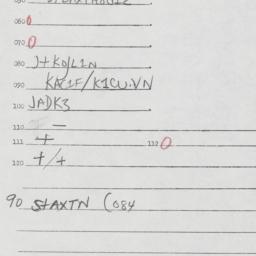 060 0
070 0
080 J+KO/L1N
090 KA1F/K1CW.VN
100 JADK3
110 —
111 + 112 0
120 +/+
90 STAXTN (084